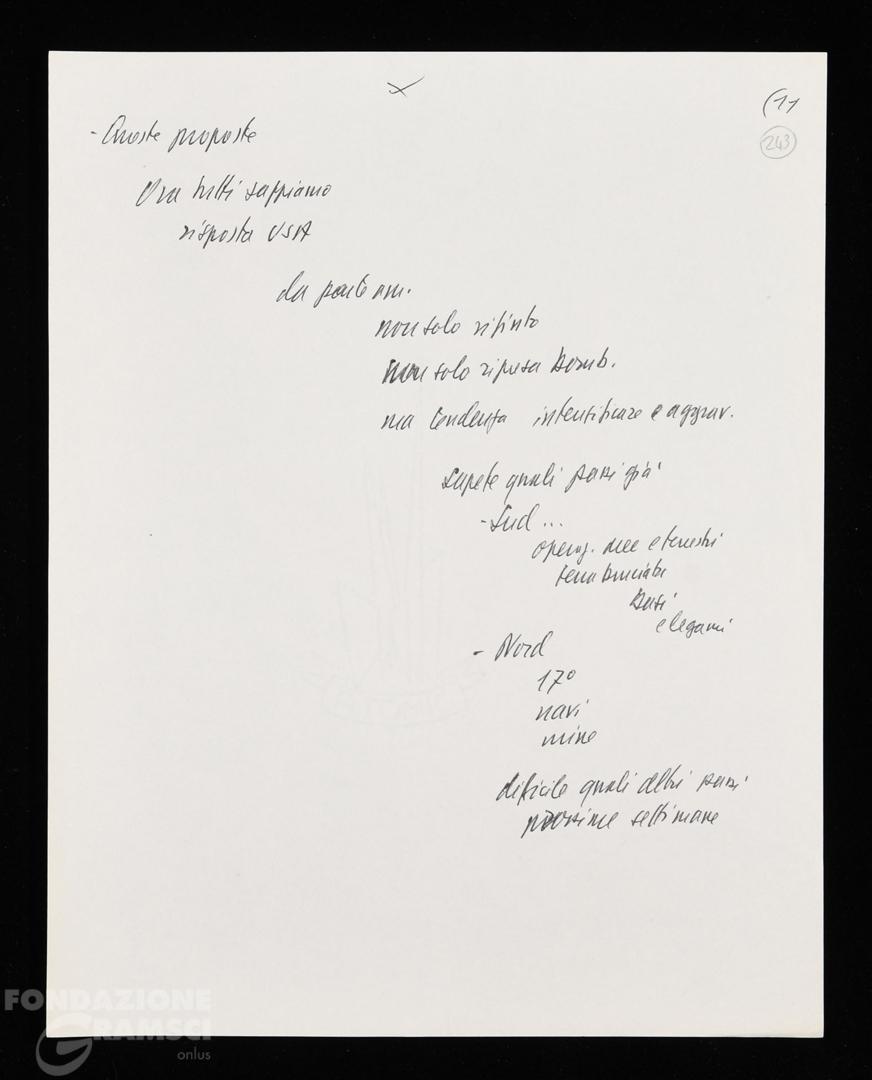 (11
243
- Queste proposte
Ora tutti sappiamo
risposta USA
da parte am.
non solo rifiuto
non solo ripresa bomb.
ma tendenza intensificare e aggrav.
Sapete quali passi già
- Sud ...
operaz. aeree e terrestri
terra bruciata
basi
e legami
- Nord
17°
navi
mine
dificile quali altri passi
prossime settimane
FONDAZIONE
GRAMSCI
onlus